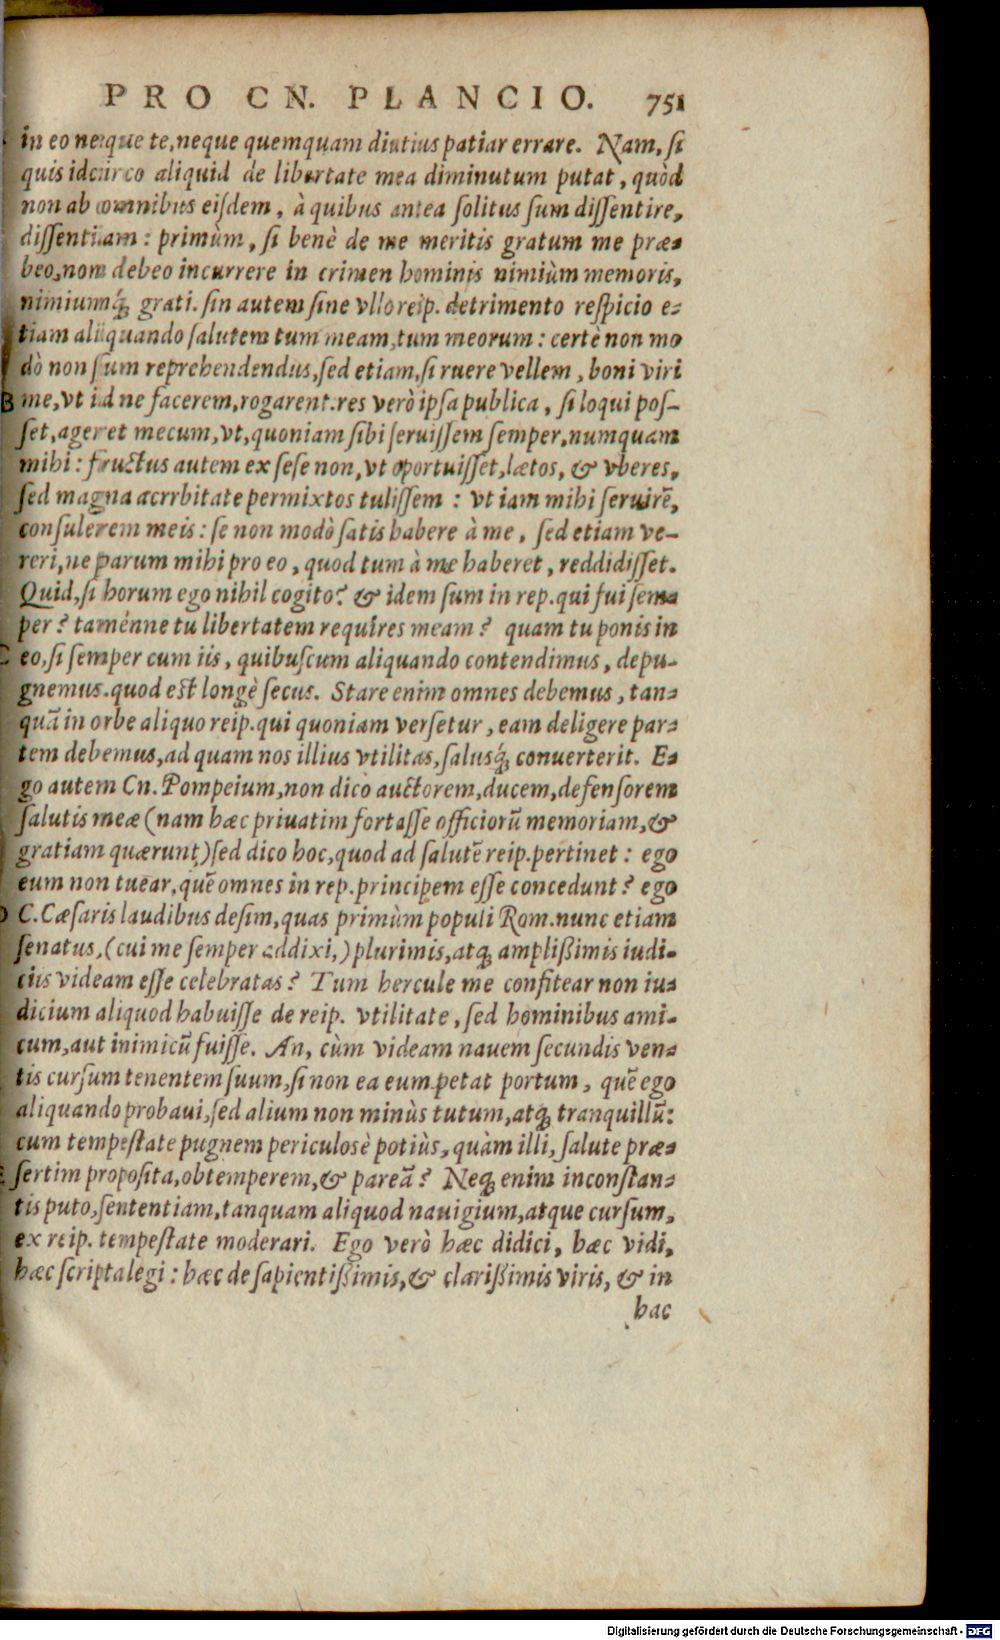 PRO CN. PLANCIO. 751
in eo neque te, neque quemquam diutius patiar errare. Nam, ſi
quis idcirco aliquid de libertate mea diminutum putat, quòd
non ab omnibus eiſdem, à quibus antea ſolitus ſum diſſentire,
diſſentiam: primùm, ſi benè de me meritis gratum me præ-
beo, non debeo incurrere in crimen hominis nimiùm memoris,
nimiumq́ grati. ſin autem ſine vllo reip. detrimento reſpicio e-
tiam aliquando ſalutem tum meam, tum meorum: certè non mo
dò non ſum reprehendendus, ſed etiam, ſi ruere vellem, boni viri
B me, vt id ne facerem, rogarent. res verò ipſa publica, ſi loqui poſ-
ſet, ageret mecum, vt, quoniam ſibi ſeruiſſem ſemper, numquam
mihi: fructus autem ex ſeſe non, vt oportuiſſet, lætos, & vberes,
ſed magna acrrbitate permixtos tuliſſem: vt iam mihi ſeruirē,
conſulerem meis: ſe non modò ſatis habere à me, ſed etiam ve-
reri, ne parum mihi pro eo, quod tum à me haberet, reddidiſſet.
Quid, ſi horum ego nihil cogito? & idem ſum in rep. qui fui ſem-
per? taménne tu libertatem requires meam? quam tu ponis in
C eo, ſi ſemper cum iis, quibuſcum aliquando contendimus, depu-
gnemus. quod eſt longè ſecus. Stare enim omnes debemus, tan-
quā in orbe aliquo reip. qui quoniam verſetur, eam deligere par-
tem debemus, ad quam nos illius vtilitas, ſaluſq́ conuerterit. E-
go autem Cn. Pompeium, non dico auctorem, ducem, defenſorem
ſalutis meæ (nam hæc priuatim fortaſſe officiorū memoriam, &
gratiam quærunt) ſed dico hoc, quod ad ſalutē reip. pertinet: ego
eum non tuear, quē omnes in rep. principem eſſe concedunt? ego
D C. Cæſaris laudibus deſim, quas primùm populi Rom. nunc etiam
ſenatus, (cui me ſemper addixi,) plurimis, atq; ampliſſimis iudi-
ciis videam eſſe celebratas? Tum hercule me confitear non iu-
dicium aliquod habuiſſe de reip. vtilitate, ſed hominibus ami-
cum, aut inimicū fuiſſe. An, cùm videam nauem ſecundis ven-
tis curſum tenentem ſuum, ſi non ea eum petat portum, quē ego
aliquando probaui, ſed alium non minùs tutum, atq; tranquillū:
cum tempeſtate pugnem periculosè potiùs, quàm illi, ſalute præ-
E ſertim propoſita, obtemperem, & pareā? Neq; enim inconſtan-
tis puto, ſententiam, tanquam aliquod nauigium, atque curſum,
ex reip. tempeſtate moderari. Ego verò hæc didici, hæc vidi,
hæc ſcripta legi: hæc de ſapientiſſimis, & clariſſimis viris, & in
hac
Digitalisierung gefördert durch die Deutsche Forschungsgemeinschaft - DFG